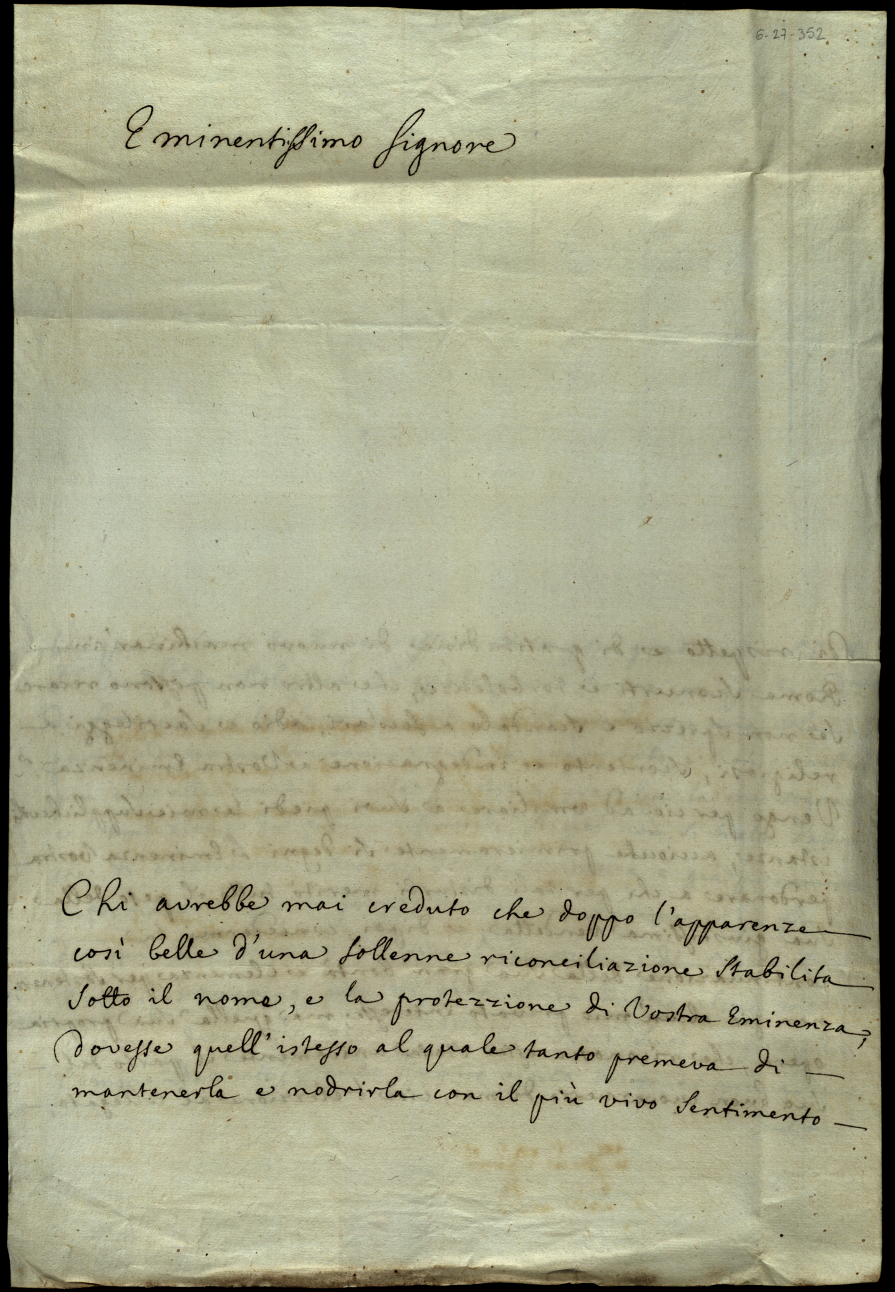 6-27-352
Eminentissimo Signore
Chi avrebbe mai creduto che doppo l'apparenze
così belle d'una sollenne riconciliazione stabilita
sotto il nome, e la protezzione di Vostra Eminenza,
dovesse quell'istesso al quale tanto premeva di
mantenerla e nodrirla con il più vivo sentimento